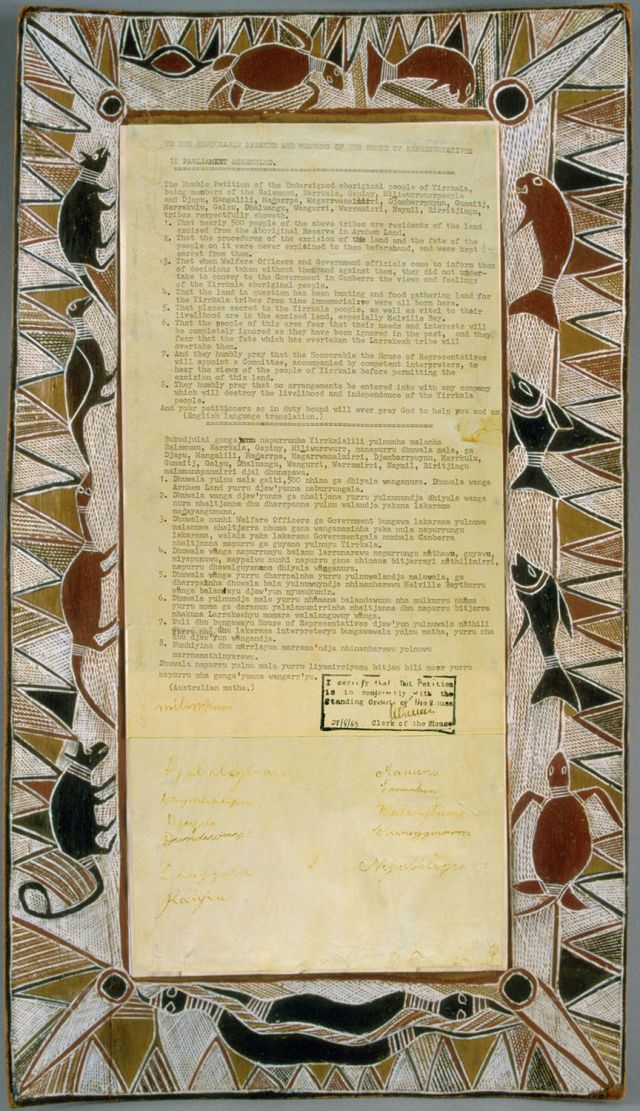 TO THE HONOURABLE SPEAKER AND MEMBERS OF THE HOUSE OF REPRESENTATIVES
IN PARLIAMENT ASSEMBLED.
The Humble Petition of the Undersigned aboriginal people of Yirrkala,
being members of the Balamumu, Narrkala, Gapiny, Miliwurrwurr people
and Djapu, Mangalili, Madarrpa, Magarrwanalmirri, Djambarrpuynu, Gumaitj,
Marrakulu, Galpu, Dhaluangu, Wangurri, Warramirri, Naymil, Rirritjingu,
tribes respectfully showeth.
1. That nearly 500 people of the above tribes are residents of the land
excised from the Aboriginal Reserve in Arnhem Land.
2. That the procedures of the excision of this land and the fate of the
people on it were never explained to them beforehand, and were kept
secret from them.
3. That when Welfare Officers and Government officials came to inform them
of decisions taken without them and against them, they did not under-
take to convey to the Government in Canberra the views and feelings
of the Yirrkala aboriginal people.
4. That the land in question has been hunting and food gathering land for
the Yirrkala tribes from time immemorial: we were all born here.
5. That places sacred to the Yirrkala people, as well as vital to their
livelihood are in the excised land, especially Melville Bay.
6. That the people of this area fear that their needs and interests will
be completely ignored as they have been ignored in the past, and they
fear that the fate which has overtaken the Larrakeah tribe will
overtake them.
7. And they humbly pray that the Honourable the House of Representatives
will appoint a Committee, accompanied by competent interpreters, to
hear the views of the people of Yirrkala before permitting the
excision of this land.
8. They humbly pray that no arrangements be entered into with any company
which will destroy the livelihood and independence of the Yirrkala
people.
And your petitioners as in duty bound will ever pray God to help you and us.
(English language translation.)
Bukudjulni gonga'yurru napurrunha Yirrkalalili yulnunha malanha
Balamumu, Narrkala, Gapiny, Miliwurrwurr, nanapurru dhuwala mala, ga
Djapu, Mangalili, Madarrpa, Magarrwanalmirri, Djambarrpuynu, Marrkulu,
Gumaitj, Galpu, Dhaluangu, Wangurri, Warramirri, Naymil, Riritjingu
malamanapanmirri djal dhunapawa.
1. Dhuwala yulnu mala galki,500 nhina ga dhiyala wanganura. Dhuwala wanga
Arnhem Land yurru djaw'yunna naburrungala.
2. Dhuwala wanga djaw'yunna ga nhaltjana yurru yulnumundja dhiyala wanga
nura nhaltjanna dhu dharrpanna yulnu walandja yakana lakarama
madayangumuna.
3. Dhuwala nunhi Welfare Officers ga Government bungawa lakarama yulnuwa
malanuwa nhaltjarra nhuma gana wanganaminha yaka nula napurrungu
lakarama, walala yaka lakarama Governmentgala nunhala Canberra
nhaltjanna napurru ga guyana yulnuyu Yirrkala.
4. Dhuwala wanga napurrunyu balanu larrunarawu napurrungu nathawu, guyawu,
miyapunuwu, maypalwu nunhi napurru gana nhinana bitjarrayi nathilimirri,
napurru dhawalguyanana dhiyala wanganura.
5. Dhuwala wanga yurru dharrpalnha yurru yulnuwalandja malawala, ga
dharrpalnha dhuwala bala yulnuwuyndja nhinanharawu Melville Baythurru
wanga balandayu djaw'yun nyumukunin.
6. Dhuwala yulmundja mala yurru nhamana balandawunu nha mulkurru nhama
yurru moma ga daranun yalalanumirrinha nhaltjanna dhu napurru bitjarra
nhakuna Larrakeahyu momara walalanguwuy wanga.
7. Nuli dhu bungawayu House of Representatives djaw'yun yulnuwala nathili
yurru nha dhu lakarama interpreteryu bungawawala yolnu matha, yurru nha
dhu djaw'yun wangandja.
8. Nunhiyina dhu marrlayun marrama'ndja nhinanharawu yolnuwu
marrnamathinyarawu.
Dhuwala napurru yolnu mala yurru liyamirriyama bitjan bili marr yurru
napurru nha gonga'yunna wangarr'yu.
(Australian matha.)
I certify that this Petition
is in conformity with the
Standing Orders of the House
Clerk of the House